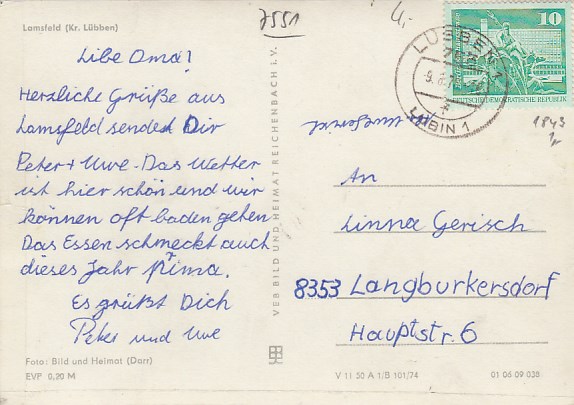 Lamsfeld (Kr. Lübben)
7551
4,-
Libe Oma!
Herzliche Grüße aus
Lamsfeld sended Dir
Peter + Uwe. Das Wetter
ist hier schön und wir
können oft baden gehen
Das Essen schmeckt auch
dieses Jahr Prima.
Es grüßt Dich
Peter und Uwe
Foto: Bild und Heimat (Darr)
EVP 0,20 M
VEB BILD UND HEIMAT REICHENBACH i. V.
10
DEUTSCHE DEMOKRATISCHE REPUBLIK
LÜBBEN 1
LUBIN 1
1843
An
Linna Gerisch
8353 Langburkersdorf
Hauptstr. 6
V 11 50 A 1/B 101/74
01 06 09 038